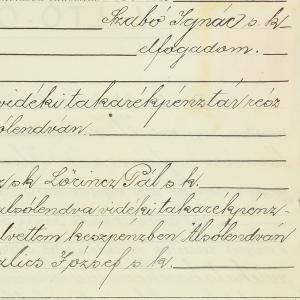 Szabó Ignác s. k.
elfogadom.
vidéki takarékpénztár rész
sólendván
sk Lőrincz Pál s. k.
alsólendva vidéki takarékpénz-
lvettem készpénzben Alsólendván
ulics József s. k.